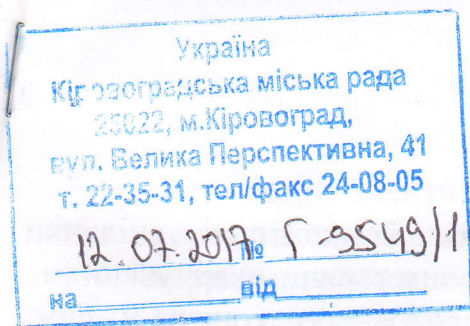 Україна
Кіровоградська міська рада
25022, м.Кіровоград,
вул. Велика Перспективна, 41
т. 22-35-31, тел/факс 24-08-05
12.07.2017 № Г-9549/1
на від